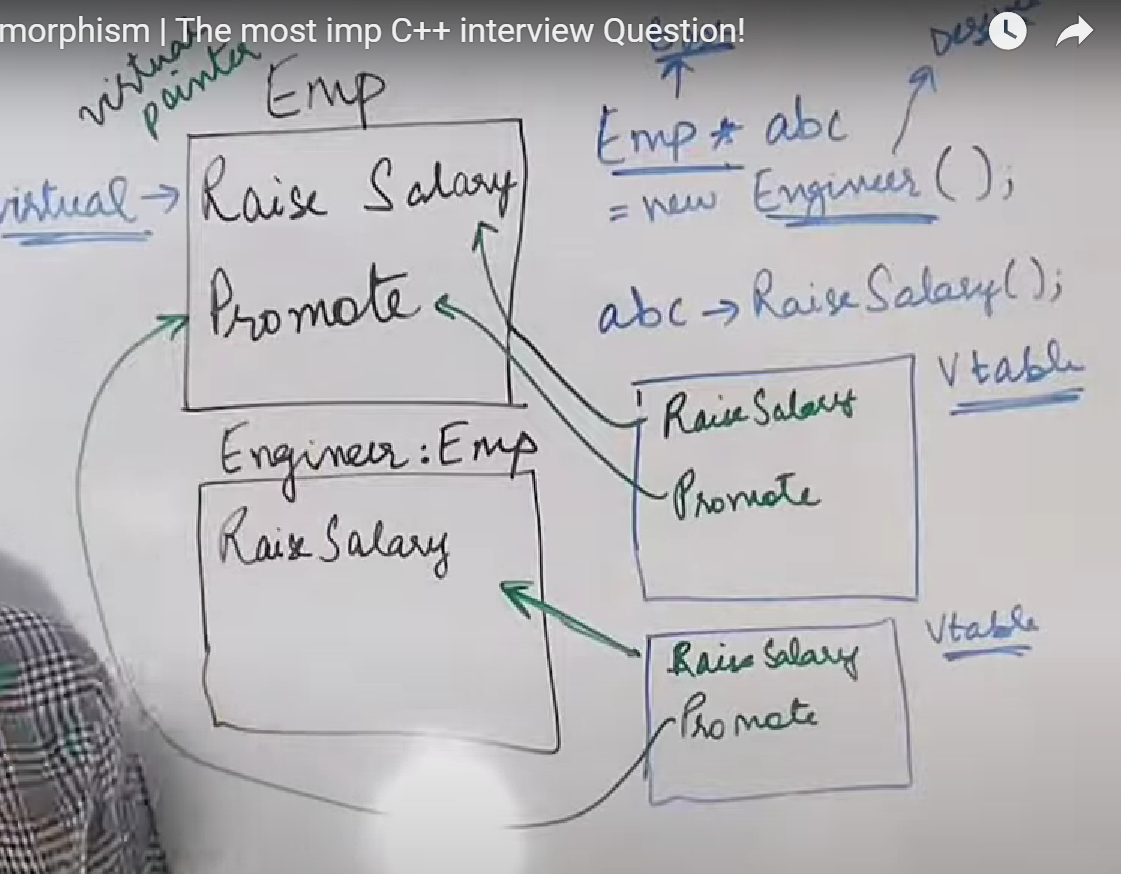 morphism | The most imp C++ interview Question!
virtual
pointer
Emp
virtual →
Raise Salary
Promote
Engineer : Emp
Raise Salary
Emp * abc
= new Engineer();
abc → RaiseSalary();
Vtable
Raise Salary
Promote
Vtable
Raise Salary
Promote